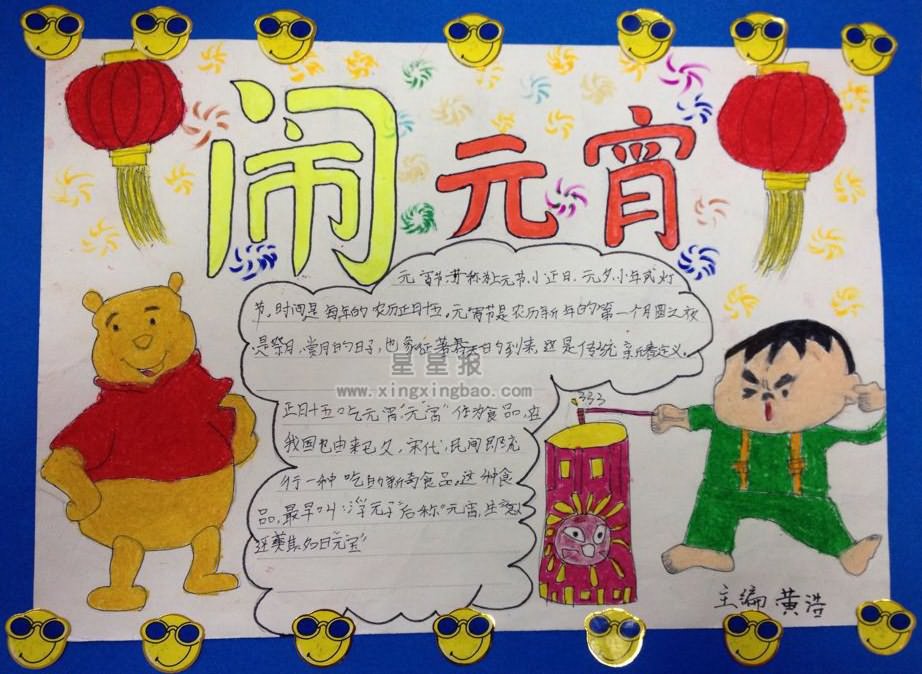 闹元宵
元宵节,节称为上元节、小正月、元夕、小年或灯
节,时间是每年的农历正月十五,元宵节是农历新年的第一个月圆之夜
是祭月、赏月的日子,也象征著春天的到来,这是传统
星星报
www.xingxingbao.com
正月十五吃元宵"元宵"作为食品,在
我国也由来已久,宋代,民间即流
行一种吃的新奇食品,这种食
品,最早叫"浮元子"后称"元宵,生意
还美其名曰元宝"
主编 黄浩